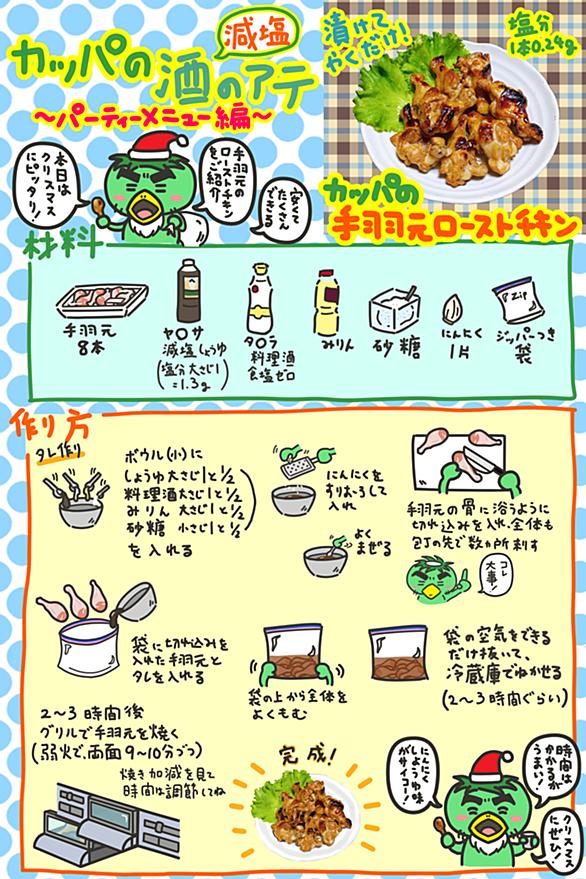 減塩
カッパの酒のアテ
～パーティーメニュー編～
漬けて
やくだけ!
塩分
1本0.24g
本日は
クリスマス
にピッタリ!
手羽元の
ローストチキン
をご紹介
安くて
たくさん
できる
カッパの
手羽元ローストチキン
材料
手羽元
8本
ヤ〇サ
減塩しょうゆ
(塩分大さじ1
=1.3g)
タ〇ラ
料理酒
食塩ゼロ
みりん
砂糖
にんにく
1片
Zip
ジッパーつき
袋
作り方
タレ作り
ボウル(小)に
しょうゆ大さじ1と1/2
料理酒大さじ1と1/2
みりん 大さじ1と1/2
砂糖 小さじ1と1/2
を入れる
にんにくを
すりおろして
入れ
よく
まぜる
手羽元の骨に沿うように
切れ込みを入れ、全体も
包丁の先で数か所刺す
コレ
大事!
袋に切れ込みを
入れた手羽元と
タレを入れる
袋の上から全体を
よくもむ
袋の空気をできる
だけ抜いて、
冷蔵庫でねかせる
(2～3時間ぐらい)
2～3時間後
グリルで手羽元を焼く
(弱火で、両面9～10分づつ)
焼き加減を見て
時間は調節してね
完成!
にんにく
しょうゆ味
がサイコー!
時間は
かかるが
うまい!
クリスマス
にぜひ!